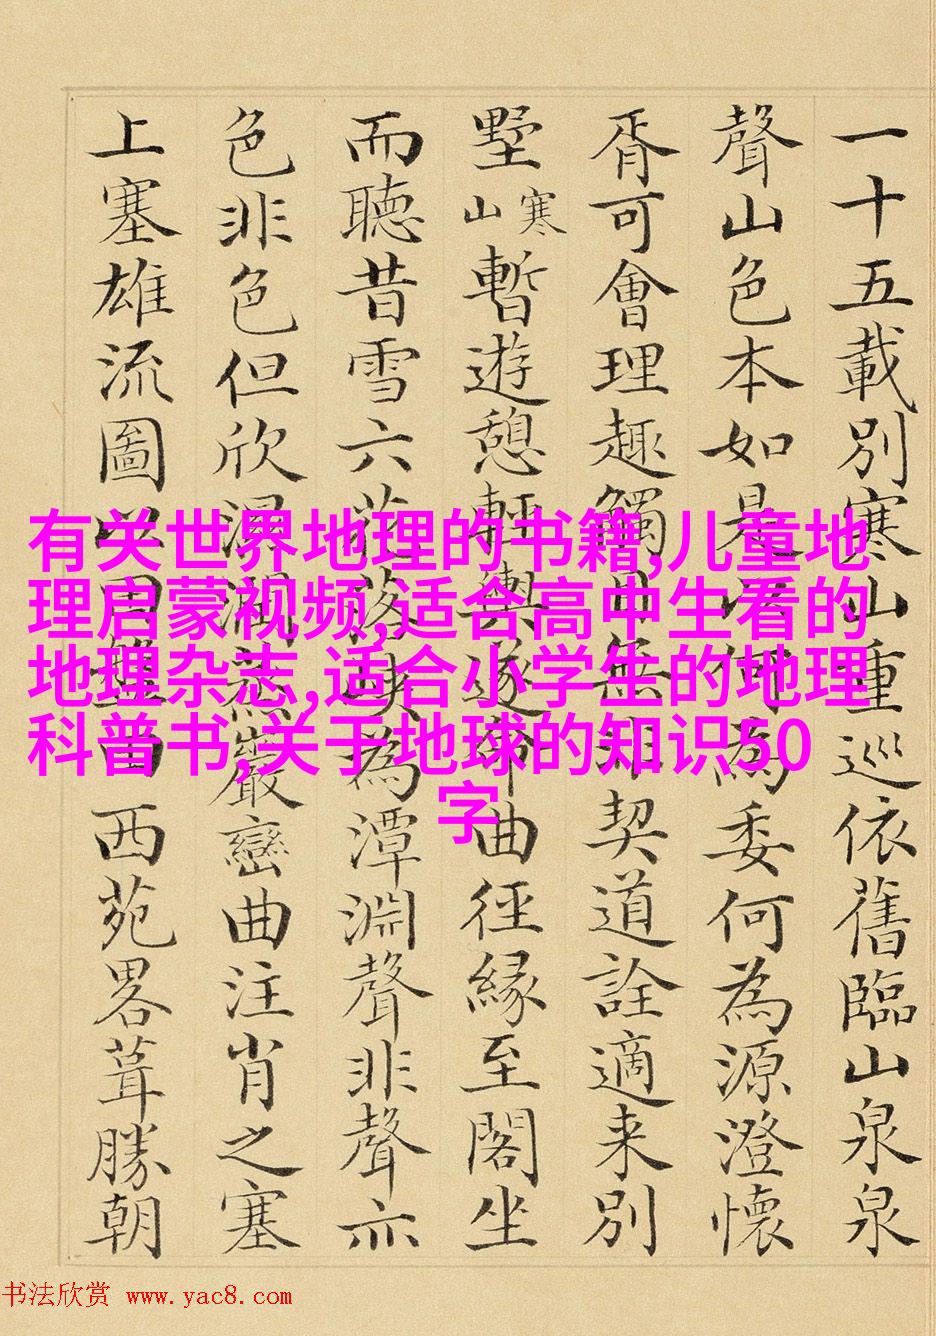 一十五載別寒山重巡依舊臨山泉泉
聲山色本如是何為委何為源澄懷
胥可會理趣觸目無非契道詮適来別
墅寒山暫遊憩輕輿遂曲徑緣至閣坐
而聽昔雪六花落為潭淵聲非聲亦
色非色但欣濕潤巖巒曲注肖之塞
上塞雄流圖以西苑畧葺勝朝
有关世界地理的书籍,儿童地
理启蒙视频,适合高中生看的
地理杂志,适合小学生的地理
科普书,关于地球的知识50
字
书法欣赏 www.yac8.com